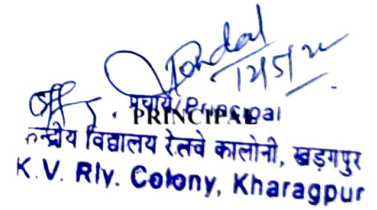 12/5/22
प्राचार्य/Principal
PRINCIPAL
केन्द्रीय विद्यालय रेलवे कालोनी, खड़गपुर
K.V. Rly. Colony, Kharagpur